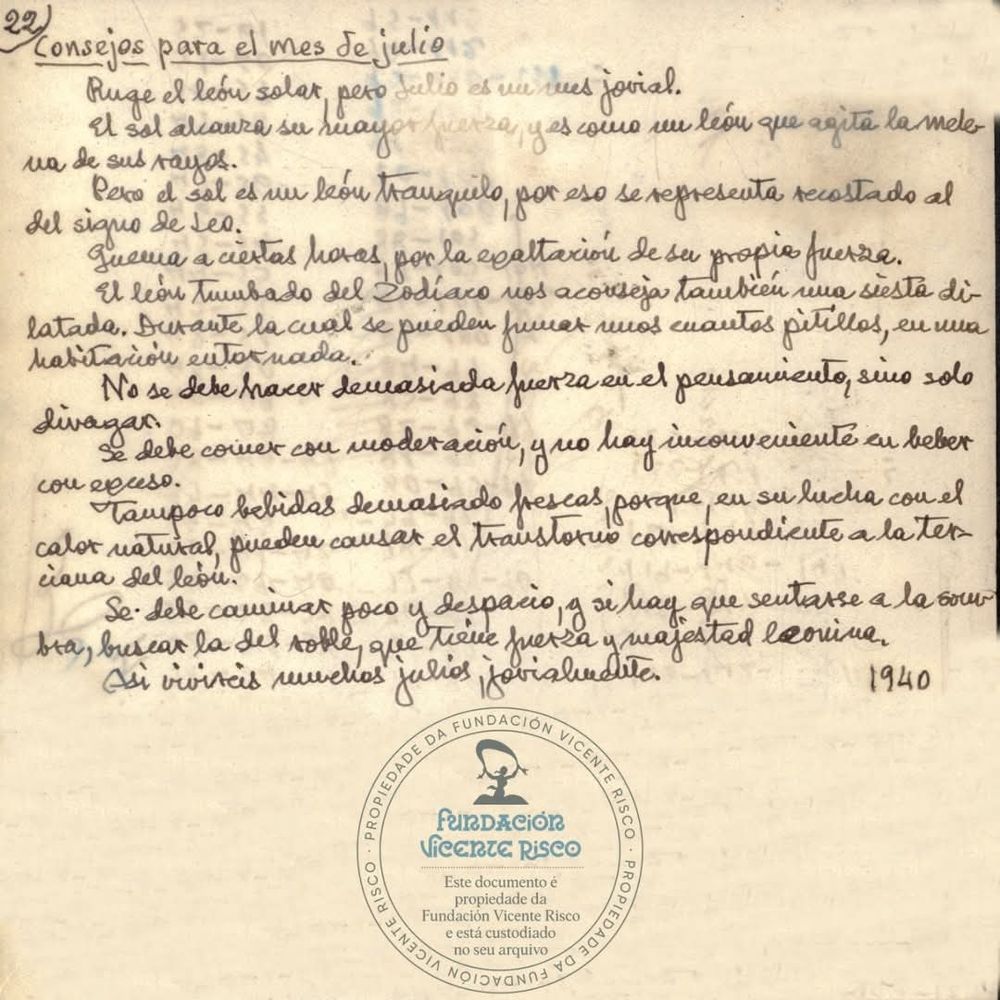 22)
Consejos para el mes de julio
Ruge el león solar, pero Julio es un mes jovial.
El sol alcanza su mayor fuerza, y es como un león que agita la mele-
na de sus rayos.
Pero el sol es un león tranquilo, por eso se representa recostado al
del signo de Leo.
Quema a ciertas horas, por la exaltación de su propia fuerza.
El león tumbado del Zodíaco nos aconseja también una siesta di-
latada. Durante la cual se pueden fumar unos cuantos pitillos, en una
habitación entornada.
No se debe hacer demasiada fuerza en el pensamiento, sino solo
divagar.
Se debe comer con moderación, y no hay inconveniente en beber
con exceso.
Tampoco bebidas demasiado frescas, porque, en su lucha con el
calor natural, pueden causar el transtorno correspondiente a la ter-
ciana del león.
Se debe caminar poco y despacio, y si hay que sentarse a la som-
bra, buscar la del roble, que tiene fuerza y majestad leonina.
Asi vivireis muchos julios, jovialmente.
1940
PROPIEDADE DA FUNDACIÓN VICENTE RISCO · PROPIEDADE DA FUNDACIÓN VICENTE RISCO ·
FUNDACIÓN
VICENTE RISCO
Este documento é
propiedade da
Fundación Vicente Risco
e está custodiado
no seu arquivo